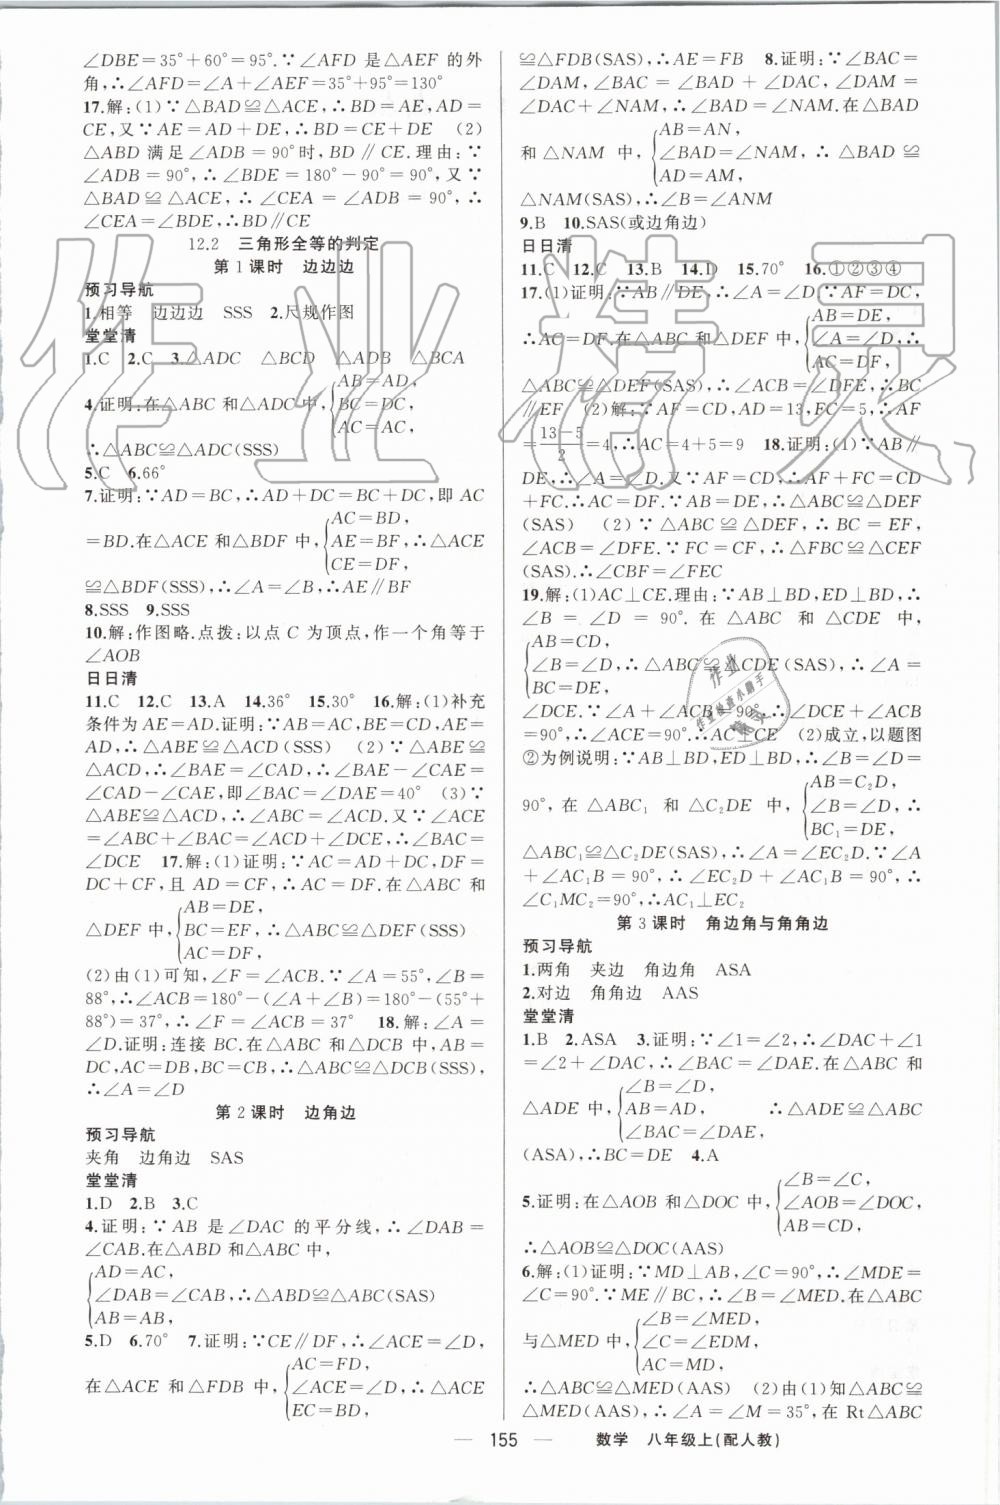 ∠DBE=35°+60°=95°.∵∠AFD 是△AEF 的外
角,∴∠AFD=∠A+∠AEF=35°+95°=130°
17.解:(1)∵△BAD≌△ACE,∴BD=AE,AD=
CE,又∵AE=AD+DE,∴BD=CE+DE (2)
△ABD 满足∠ADB=90°时,BD∥CE.理由:∵
∠ADB=90°,∴∠BDE=180°-90°=90°,又∵
△BAD≌△ACE,∴∠CEA=∠ADB=90°,∴
∠CEA=∠BDE,∴BD∥CE
12.2 三角形全等的判定
第1课时 边边边
预习导航
1.相等 边边边 SSS 2.尺规作图
堂堂清
1.C 2.C 3.△ADC △BCD △ADB △BCA
AB=AD,
4.证明:在△ABC 和△ADC 中,{BC=DC,
AC=AC,
∴△ABC≌△ADC(SSS)
5.C 6.66°
7.证明:∵AD=BC,∴AD+DC=BC+DC,即 AC
AC=BD,
=BD.在△ACE 和△BDF 中,{AE=BF,∴△ACE
CE=DF,
≌△BDF(SSS),∴∠A=∠B,∴AE∥BF
8.SSS 9.SSS
10.解:作图略.点拨:以点 C 为顶点,作一个角等于
∠AOB
日日清
11.C 12.C 13.A 14.36° 15.30° 16.解:(1)补充
条件为 AE=AD.证明:∵AB=AC,BE=CD,AE=
AD,∴△ABE≌△ACD(SSS) (2)∵△ABE≌
△ACD,∴∠BAE=∠CAD,∴∠BAE-∠CAE=
∠CAD-∠CAE,即∠BAC=∠DAE=40° (3)∵
△ABE≌△ACD,∴∠ABC=∠ACD.又∵∠ACE
=∠ABC+∠BAC=∠ACD+∠DCE,∴∠BAC=
∠DCE 17.解:(1)证明:∵AC=AD+DC,DF=
DC+CF,且 AD=CF,∴AC=DF.在△ABC 和
AB=DE,
△DEF 中,{BC=EF,∴△ABC≌△DEF(SSS)
AC=DF,
(2)由(1)可知,∠F=∠ACB.∵∠A=55°,∠B=
88°,∴∠ACB=180°-(∠A+∠B)=180°-(55°+
88°)=37°,∴∠F=∠ACB=37° 18.解:∠A=
∠D.证明:连接 BC.在△ABC 和△DCB 中,AB=
DC,AC=DB,BC=CB,∴△ABC≌△DCB(SSS),
∴∠A=∠D
第2课时 边角边
预习导航
夹角 边角边 SAS
堂堂清
1.D 2.B 3.C
4.证明:∵AB 是∠DAC 的平分线,∴∠DAB=
∠CAB.在△ABD 和△ABC 中,
AD=AC,
{∠DAB=∠CAB,∴△ABD≌△ABC(SAS)
AB=AB,
5.D 6.70° 7.证明:∵CE∥DF,∴∠ACE=∠D,
AC=FD,
在△ACE 和△FDB 中,{∠ACE=∠D,∴△ACE
EC=BD,
≌△FDB(SAS),∴AE=FB 8.证明:∵∠BAC=
∠DAM,∠BAC=∠BAD+∠DAC,∠DAM=
∠DAC+∠NAM,∴∠BAD=∠NAM.在△BAD
AB=AN,
和△NAM 中,{∠BAD=∠NAM,∴△BAD≌
AD=AM,
△NAM(SAS),∴∠B=∠ANM
9.B 10.SAS(或边角边)
日日清
11.C 12.C 13.B 14.D 15.70° 16.①②③④
17.(1)证明:∵AB∥DE,∴∠A=∠D.∵AF=DC,
AB=DE,
∴AC=DF.在△ABC 和△DEF 中,{∠A=∠D,∴
AC=DF,
△ABC≌△DEF(SAS),∴∠ACB=∠DFE,∴BC
∥EF (2)解:∵AF=CD,AD=13,FC=5,∴AF
=(13-5)/2=4,∴AC=4+5=9 18.证明:(1)∵AB∥
DE,∴∠A=∠D.又∵AF=CD,∴AF+FC=CD
+FC.∴AC=DF.∵AB=DE,∴△ABC≌△DEF
(SAS) (2)∵△ABC≌△DEF,∴BC=EF,
∠ACB=∠DFE.∵FC=CF,∴△FBC≌△CEF
(SAS).∴∠CBF=∠FEC
19.解:(1)AC⊥CE.理由:∵AB⊥BD,ED⊥BD,∴
∠B=∠D=90°.在△ABC 和△CDE 中,
AB=CD,
{∠B=∠D,∴△ABC≌△CDE(SAS),∴∠A=
BC=DE,
∠DCE.∵∠A+∠ACB=90°,∴∠DCE+∠ACB
=90°,∴∠ACE=90°.∴AC⊥CE (2)成立,以题图
②为例说明:∵AB⊥BD,ED⊥BD,∴∠B=∠D=
AB=C₂D,
90°,在△ABC₁ 和△C₂DE 中,{∠B=∠D,∴
BC₁=DE,
△ABC₁≌△C₂DE(SAS),∴∠A=∠EC₂D.∵∠A
+∠AC₁B=90°,∴∠EC₂D+∠AC₁B=90°,∴
∠C₁MC₂=90°,∴AC₁⊥EC₂
第3课时 角边角与角角边
预习导航
1.两角 夹边 角边角 ASA
2.对边 角角边 AAS
堂堂清
1.B 2.ASA 3.证明:∵∠1=∠2,∴∠DAC+∠1
=∠2+∠DAC,∴∠BAC=∠DAE.在△ABC 和
∠B=∠D,
△ADE 中,{AB=AD, ∴△ADE≌△ABC
∠BAC=∠DAE,
(ASA),∴BC=DE 4.A
∠B=∠C,
5.证明:在△AOB 和△DOC 中,{∠AOB=∠DOC,
AB=CD,
∴△AOB≌△DOC(AAS)
6.解:(1)证明:∵MD⊥AB,∠C=90°,∴∠MDE=
∠C=90°.∵ME∥BC,∴∠B=∠MED.在△ABC
∠B=∠MED,
与△MED 中,{∠C=∠EDM,
AC=MD,
∴△ABC≌△MED(AAS) (2)由(1)知△ABC≌
△MED(AAS),∴∠A=∠M=35°,在 Rt△ABC
— 155 — 数学 八年级上(配人教)
作业精灵
作业
作业检查小助手
精灵